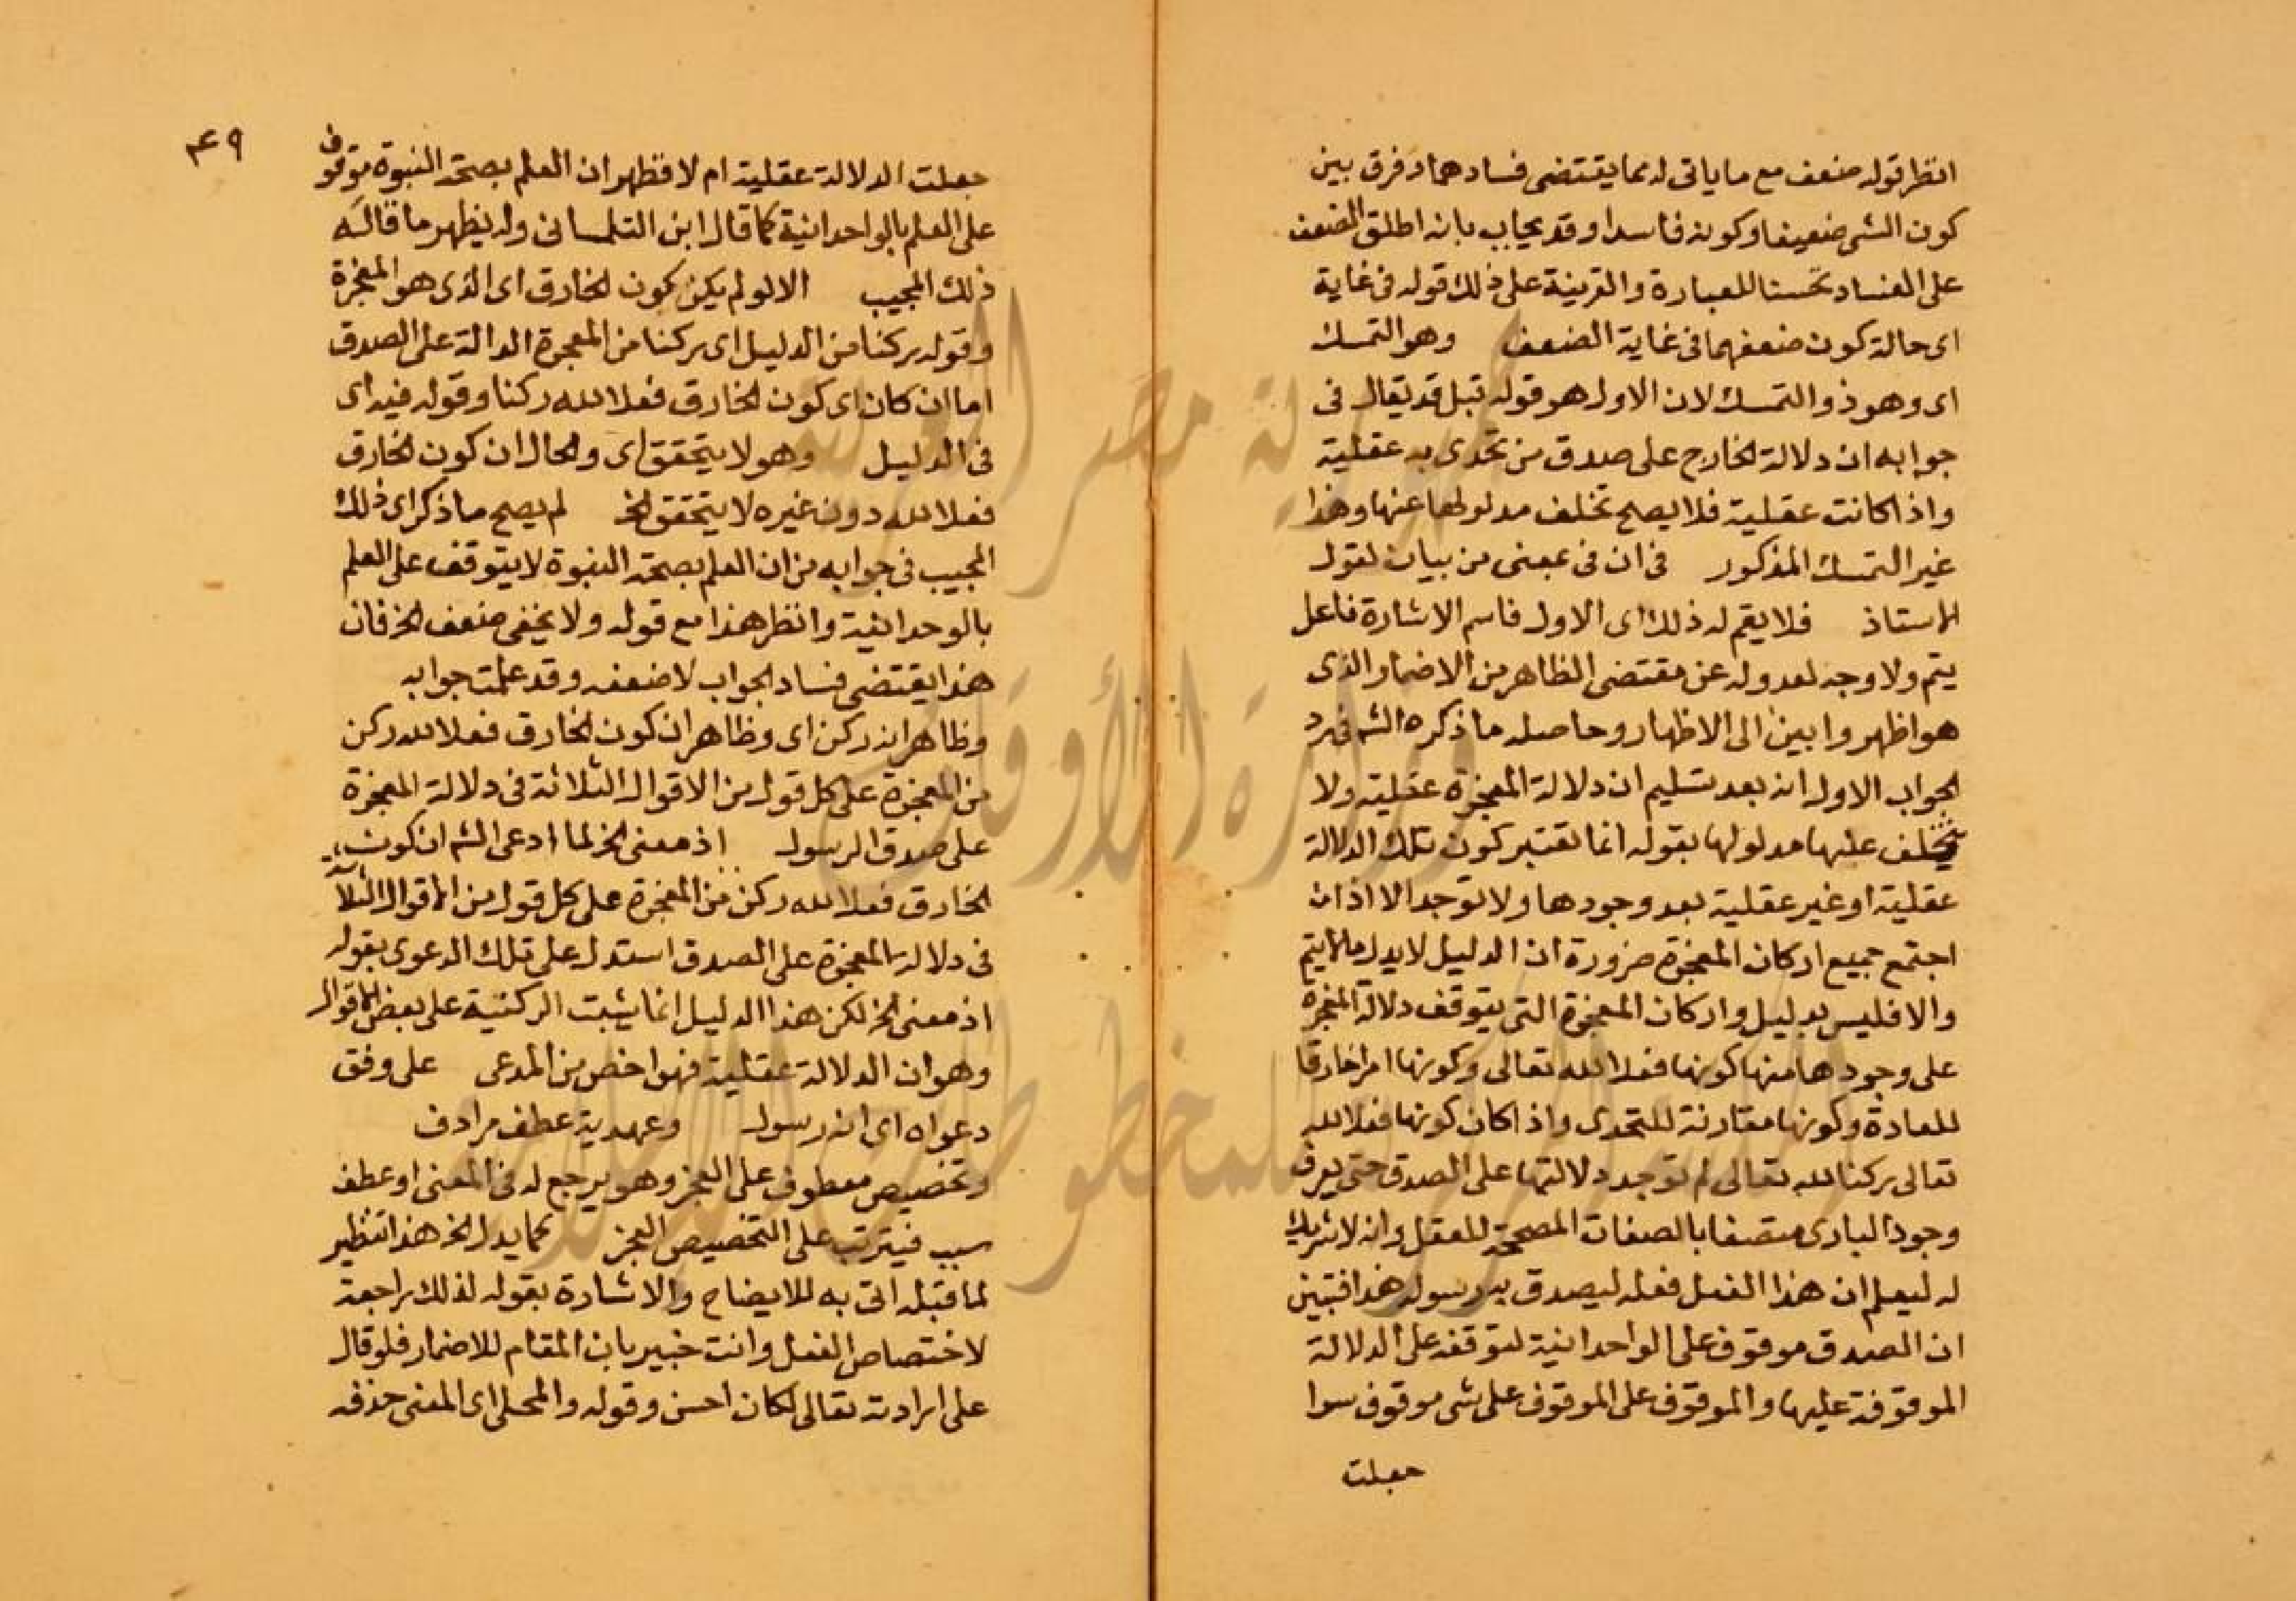 انظر قوله ضعف مع ما ياتى له مما يقتضى فسادهما وفرق بين
كون الشى ضعيفا وكونه فاسدا وقد يجاب بانه اطلق الضعف
على الفساد تحسنا للعبارة والقرينة على ذلك قوله فى غاية
اى حالة كون ضعفهما فى غاية الضعف وهو التمسك
اى وهو ذو التمسك لان الاول هو قوله قبل قد يقال فى
جوابه ان دلالة الخارج على صدق من تحدى به عقلية
واذا كانت عقلية فلا يصح تخلف مدلولها عنها وهذا
غير التمسك المذكور فى ان فى بمعنى من بيان لقول
الاستاذ فلا يتم له ذلك اى الاول فاسم الاشارة فاعل
يتم ولا وجه لعدوله عن مقتضى الظاهر من الاضمار الذى
هو اظهر وابين الى الاظهار وحاصل ما ذكره الشم فى رد
الجواب الاول انه بعد تسليم ان دلالة المعجزة عقلية ولا
يتخلف عليها مدلولها بقوله انما تعتبر كون تلك الدلالة
عقلية او غير عقلية بعد وجودها ولا توجد الا اذا ان
اجتمع جميع اركان المعجزة ضرورة ان الدليل لا يدل مالا يتم
والا فليس بدليل واركان المعجزة التى يتوقف دلالة المعجزة
على وجودها منها كونها فعلا لله تعالى وكونها امرا خارقا
للعادة وكونها مقارنة للتحدى واذا كان كونها فعلا لله
تعالى ركنا لله تعالى لم توجد دلالتها على الصدق حتى يعرف
وجود البارى متصفا بالصفات المصححة للعقل وانه لا شريك
له ليعلم ان هذا الفعل فعله ليصدق به رسوله هذا فتبين
ان الصدق موقوف على الواحدانية لتوقفه على الدلالة
الموقوفة عليها والموقوف على الموقوف على شى موقوف سوا
جعلت
٤٩
جعلت الدلالة عقلية ام لا فظهر ان العلم بصحة النبوة يتوقف
على العلم بالواحدانية كما قال ابن التلمسانى ولم يظهر ما قاله
ذلك المجيب الا لو لم يكن كون الخارق اى الذى هو المعجزة
وقوله ركنا من الدليل اى ركنا من المعجزة الدالة على الصدق
اما ان كان اى كون الخارق فعلا لله ركنا وقوله فيه اى
فى الدليل وهو لا يتحقق اى والحال ان كون الخارق
فعلا لله دون غيره لا يتحقق الخ لم يصح ما ذكر اى ذلك
المجيب فى جوابه من ان العلم بصحة النبوة لا يتوقف على العلم
بالوحدانية وانظر هذا مع قوله ولا يخفى ضعف الخ فان
هذا يقتضى فساد الجواب لا ضعفه وقد علمت جوابه
وظاهر انه ركن اى وظاهر ان كون الخارق فعلا لله ركن
من المعجزة على كل قول من الاقوال الثلاثة فى دلالة المعجزة
على صدق الرسول اذ معنى الخ لما ادعى الشم ان كون
الخارق فعلا لله ركن من المعجزة على كل قول من الاقوال الثلاثة
فى دلالة المعجزة على الصدق استدل على تلك الدعوى بقوله
اذ معنى الخ لكن هذا الدليل انما يثبت الركنية على بعض الاقوال
وهو ان الدلالة عقلية فهو اخص من المدعى على وفق
دعواه اى انه رسول وعهدية عطف مرادف
وتخصيص معطوف على العجز وهو يرجع له فى المعنى او عطف
سبب فيترتب على التخصيص العجز كما يدل الخ هذا تنظير
لما قبله اتى به للايضاح والاشارة بقوله لذلك راجعة
لاختصاص الفعل وانت خبير بان المقام للاضمار فلو قال
على ارادته تعالى لكان احسن وقوله والمحل اى المعنى حذفه
جمهورية مصر العربية
وزارة الأوقاف